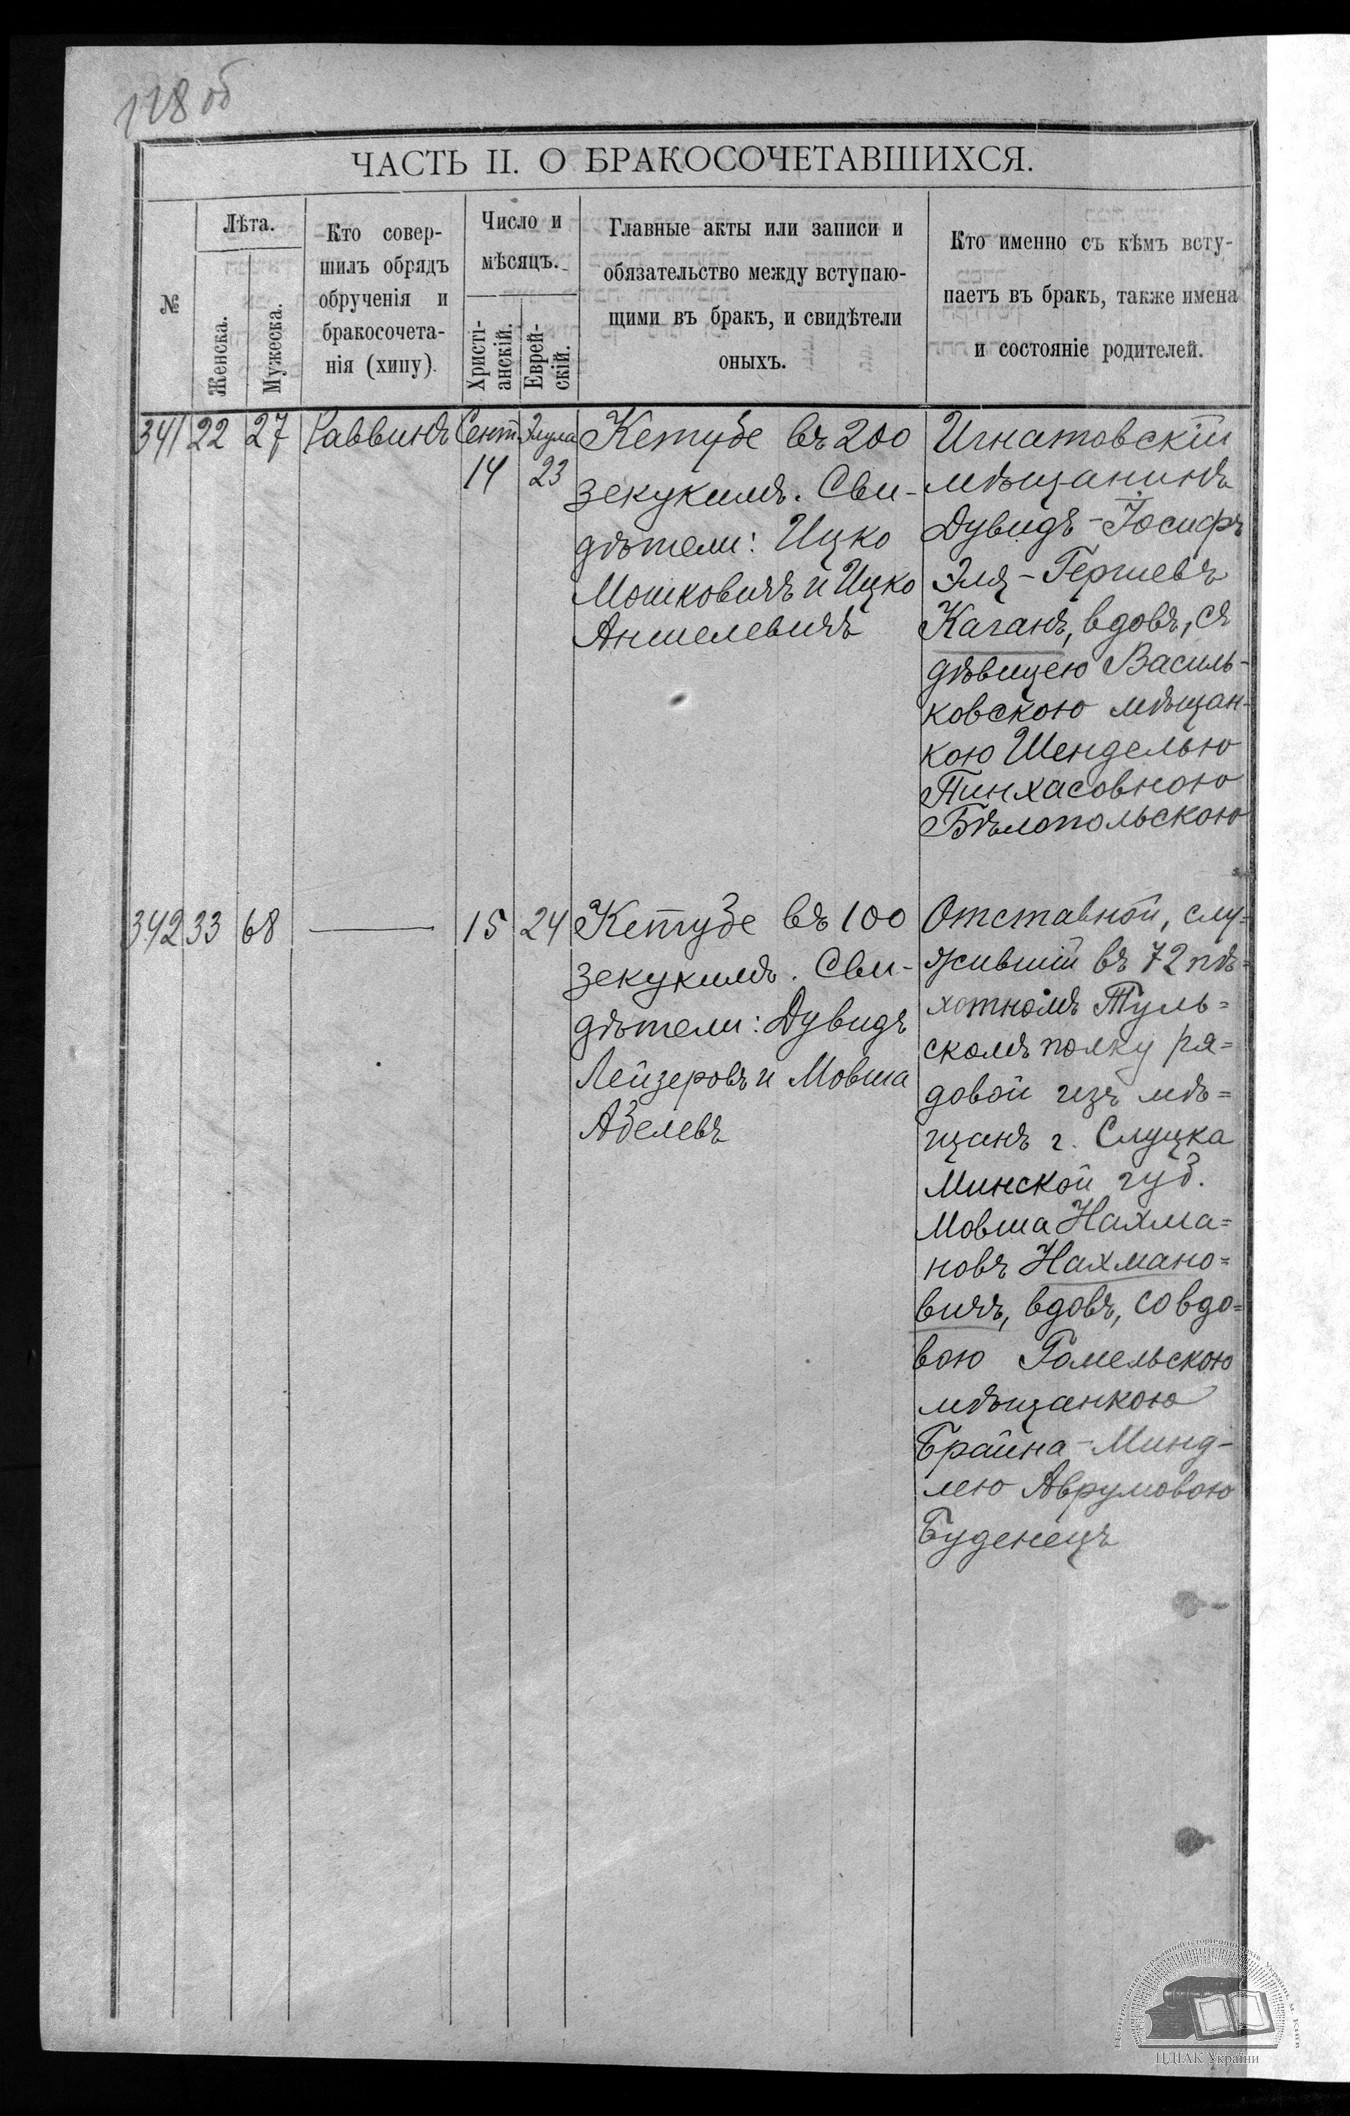 118 об
ЧАСТЬ II. О БРАКОСОЧЕТАВШИХСЯ.
№
Лѣта.
Женска.
Мужеска.
Кто совер-
шилъ обрядъ
обрученія и
бракосочета-
нія (хипу).
Число и
мѣсяцъ.
Христі-
анскій.
Еврей-
скій.
Главные акты или записи и
обязательство между вступаю-
щими въ бракъ, и свидѣтели
оныхъ.
Кто именно съ кѣмъ всту-
паетъ въ бракъ, также имена
и состояніе родителей.
341
22
27
Раввинъ
Сент
14
Элула
23
Кетубе въ 200
зекукимъ. Сви-
дѣтели: Ицко
Мошковичъ и Ицко
Аншелевичъ
Игнатовскій
мѣщанинъ
Дувидъ-Іосифъ
Эля-Гершевъ
Каганъ, вдовъ, съ
дѣвицею Василь-
ковскою мѣщан-
кою Шенделью
Пинхасовною
Бѣлопольскою
342
33
68
15
24
Кетубе въ 100
зекукимъ. Сви-
дѣтели: Дувидъ
Лейзеровъ и Мовша
Абелевъ
Отставной, слу-
жившій въ 72 пѣ=
хотномъ Туль=
скомъ полку ря=
довой изъ мѣ=
щанъ г. Слуцка
Минской губ.
Мовша Нахма=
новъ Нахмано=
вичъ, вдовъ, со вдо=
вою Гомельскою
мѣщанкою
Брайна-Минд-
лею Аврумовою
Буденецъ
Центральний державний історичний архів України, м. Київ
ЦДІАК України